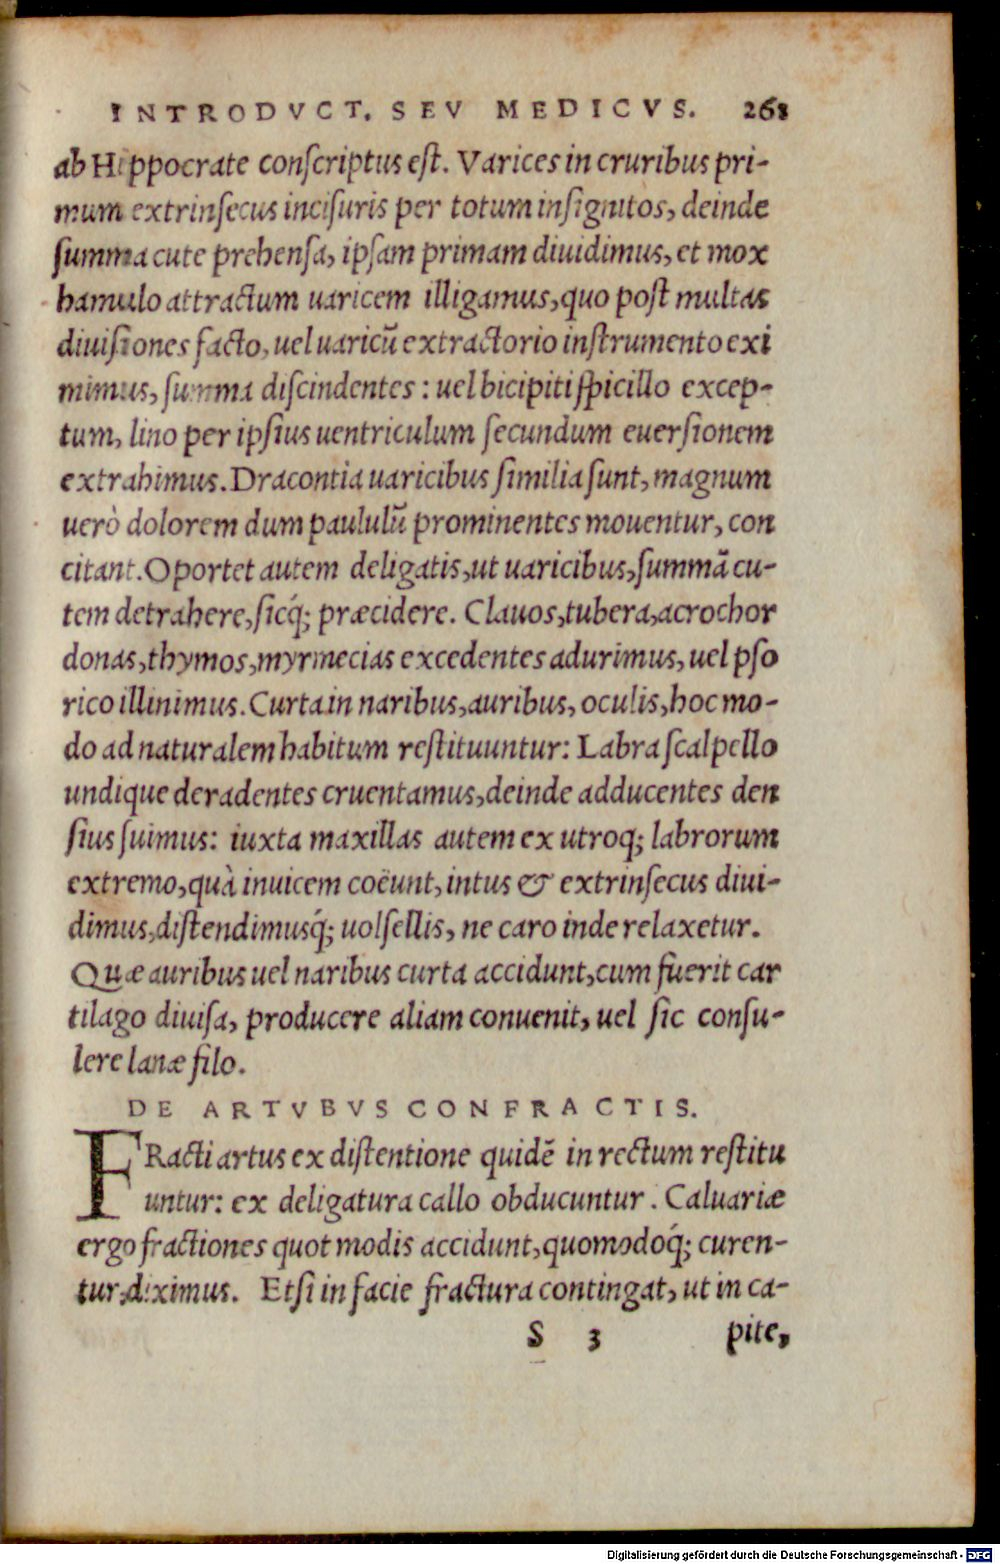 INTRODVCT. SEV MEDICVS. 261
ab Hippocrate conscriptus est. Varices in cruribus pri-
mum extrinsecus incisuris per totum insignitos, deinde
summa cute prehensa, ipsam primam diuidimus, et mox
hamulo attractum uaricem illigamus, quo post multas
diuisiones facto, uel uaricũ extractorio instrumento exi
mimus, summa discindentes: uel bicipiti spicillo excep-
tum, lino per ipsius uentriculum secundum euersionem
extrahimus. Dracontia uaricibus similia sunt, magnum
uerò dolorem dum paululũ prominentes mouentur, con
citant. Oportet autem deligatis, ut uaricibus, summã cu-
tem detrahere, sicq́; præcidere. Clauos, tubera, acrochor
donas, thymos, myrmecias excedentes adurimus, uel pso
rico illinimus. Curta in naribus, auribus, oculis, hoc mo-
do ad naturalem habitum restituuntur: Labra scalpello
undique deradentes cruentamus, deinde adducentes den
sius suimus: iuxta maxillas autem ex utroq; labrorum
extremo, quà inuicem coëunt, intus & extrinsecus diui-
dimus, distendimusq́; uolsellis, ne caro inde relaxetur.
Quæ auribus uel naribus curta accidunt, cum fuerit car
tilago diuisa, producere aliam conuenit, uel sic consu-
lere lanæ filo.
DE ARTVBVS CONFRACTIS.
FRacti artus ex distentione quidẽ in rectum restitu
untur: ex deligatura callo obducuntur. Caluariæ
ergo fractiones quot modis accidunt, quomodoq́; curen-
tur, diximus. Etsi in facie fractura contingat, ut in ca-
S 3 pite,
Digitalisierung gefördert durch die Deutsche Forschungsgemeinschaft - DFG